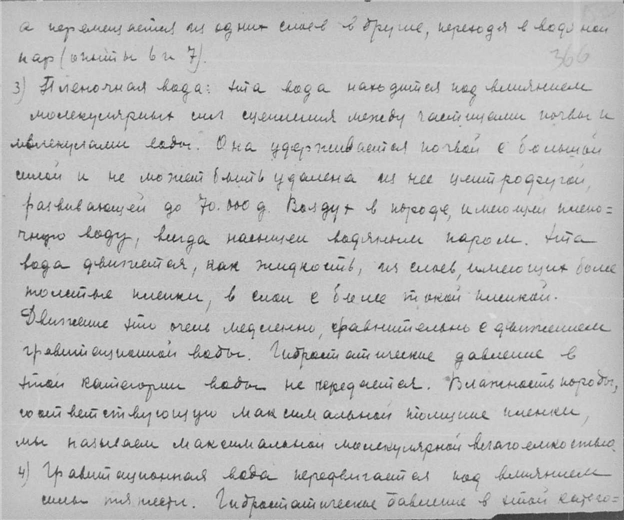 а перемещается из одних слоев в другие, переходя в водяной
366
пар (опыты 6 и 7).
3) Пленочная вода: эта вода находится под влиянием
молекулярных сил сцепления между частицами почвы и
молекулами воды. Она удерживается почвой с большой
силой и не может быть удалена из нее центрофугой,
развивающей до 70.000 g. Воздух в породе, имеющей плено=
чную воду, всегда насыщен водяным паром. Эта
вода движется, как жидкость, из слоев, имеющих более
толстые пленки, в слои с более тонкой пленкой.
Движение это очень медленно, сравнительно с движением
гравитационной воды. Гидростатическое давление в
этой категории воды не передается. Влажность породы,
соответствующую максимальной толщине пленки,
мы называем максимальной молекулярной влагоемкостью.
4) Гравитационная вода передвигается под влиянием
силы тяжести. Гидростатическое давление в этой катего=